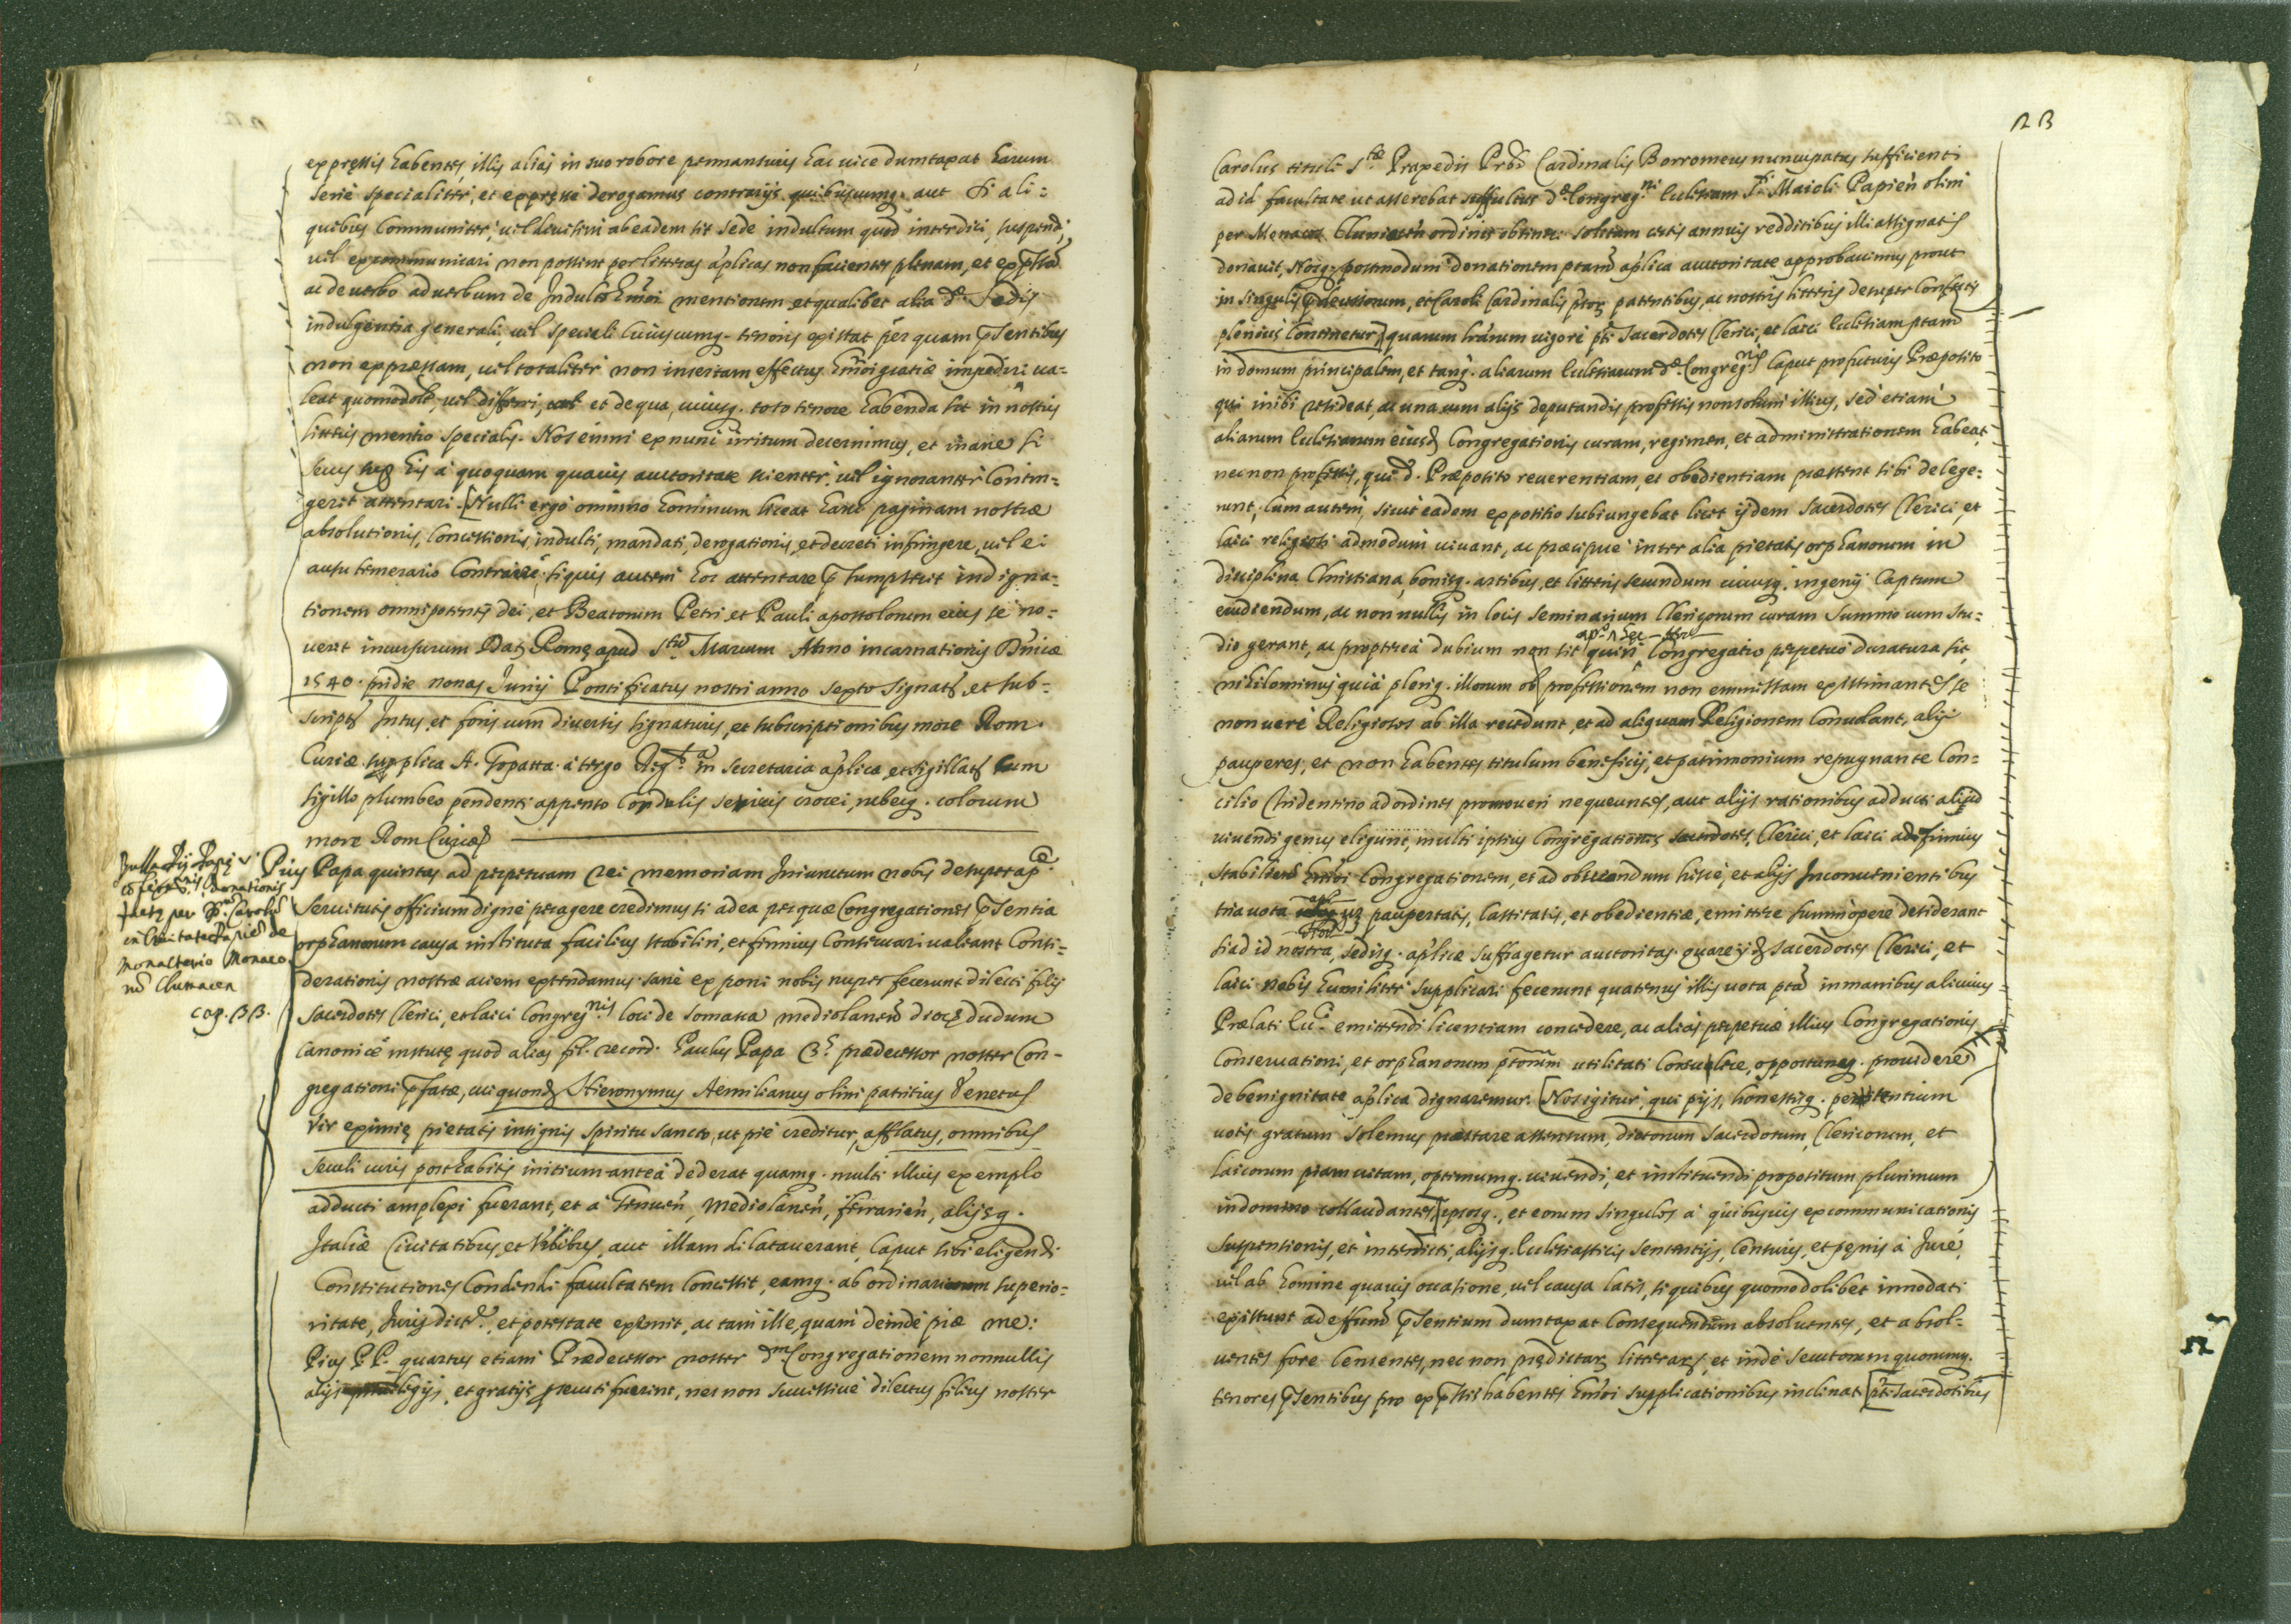 expressis habentes, illis alias in suo robore permansuris hac vice dumtaxat harum
serie specialiter, et expresse derogamus contrarijs quibuscumq. aut si ali=
quibus communiter, vel divisim ab eadem sit sede indultum quod interdici, suspendi,
vel excommunicari non possint per litteras aplicas non facientes plenam, et expssam
ac de verbo ad verbum de Indulto Emoi mentionem et qualibet alia da. Sedis
indulgentia generali, vel speciali cuiuscumq. tenoris existat per quam psentibus
non expressam, vel totaliter non insertam effectus hmoi gratiæ impediri va=
leat quomodolt, vel differri, et de qua, cuiusq. toto tenore habenda sit in nostris
litteris mentio specialis. Nos enim ex nunc irritum decernimus, et inane si
secus sup his à quoquam quavis auctoritate scienter, vel ignoranter contin=
gerit attentari. Nulli ergò omnino hominum liceat hanc paginam nostræ
absolutionis, concessionis, indulti, mandati, derogationis, et decreti infringere, vel ei
ausu temerario contraire. siquis autem hoc attentare psumpserit indigna=
tionem omnipotentis dei, et Beatorum Petri et Pauli apostolorum eius se no=
verit incursurum Dat. Romę apud Stum Marcum Anno incarnationis Dnicæ
1540. pridie nonas Junij Pontificatus nostri anno sexto signat. et sub=
script. Intus, et foris cum diversis signaturis, et subscriptionibus more Rom.
Curiæ. supplica A. Topatta. à tergo Regta. in Secretaria aplica, et sigillat. cum
sigillo plumbeo pendenti appenso cordulis sericis crocei, rubeiq. colorum
more Rom Curiæ
Bulla Pij Papę V
confirmnis Donationis
factę per B. Carolu
in Civitate Papię de
Monasterio Monaco
ru Clunacen
cap. 33.
Pius Papa quintus ad perpetuam rei memoriam Iniunctum nobis desuper apce
servitutis officium digne peragere credimus si ad ea per quæ Congregationes psentia
orphanorum causa instituta facilius stabiliri, et firmius conservari valeant Consi=
derationis nostræ aciem extendamus. sane exponi nobis nuper fecerunt dilecti filij
Sacerdotes Clerici, et laici Congregnis loci de Somasca mediolanen diocę. dudum
canonicè institutę quod alias fel. record. Paulus Papa 3s. prædecessor noster Con-
gregationi pfatæ, cui quond. Hieronymus Aemilianus olim patritius Venetus
Vir eximię pietatis insignis spiritu sancto, ut pie creditur, afflatus, omnibus
seculi curis posthabitis initium antea dederat quamq. multi illius exemplo
adducti amplexi fuerant, et a Genuen, Mediolanen, ferrarien, alijsq.
Italiæ Civitatibus, et Vrbibus, aut illam dilataverant, Caput sibi eligendi
Constitutiones Condendi facultatem concessit, eamq. ab ordinariorum superio=
ritate, Jurisdictne, et potestate exemit, ac tam ille, quam deinde piæ me:
Pius PP. quartus etiam Prædecessor noster dm Congregationem nonnullis
alijs privilegijs, et gratijs prosecuti fuerint, nec non successive dilectus filius noster
23
Carolus tituli Stæ Praxedis Prbr Cardinalis Borromeus nuncupatus sufficienti
ad id facultate ut asserebat suffultus dæ Congregni Ecclesiam Sti Maioli Papien olim
per Monacos Cluniacen ordinis obtineri solitam certis annuis redditibus illi assignatis
donavit, Nosq. postmodum donationem ptam aplica auctoritate approbavimus prout
in singulis prædecessorum, et Caroli Cardinalis ptor. patentibus, ac nostris litteris desuper confectis
plenius continetur, quarum lrarum vigore pti Sacerdotes Clerici, et laici Ecclesiam ptam
in domum principalem, et tanq. aliarum Ecclesiarum dæ Congregnis caput pro futuris Præposito
qui inibi resideat, ac una cum alijs deputandis professis non solum illius, sed etiam
aliarum Ecclesiarum eiusd. Congregationis curam, regimen, et administrationem habeat,
nec non professis, qui d. Præposito reverentiam, et obedientiam præstent sibi delege=
runt, cum autem, sicut eadem expositio subiungebat licet ijdem Sacerdotes Clerici, et
laici religiosi admodum vivant, ac præcipue inter alia pietatis orphanorum in
disciplina Christiana, bonisq. artibus, et litteris secundum cuiusq. ingenij captum
erudiendum, ac non nullis in locis seminarium Clericorum curam summo cum stu=
dio gerant, ac propterea dubium non sit quin Congregatio perpetuo duratura sit,
nihilominus quia pleriq. illorum ob professionem non emissam existimantes se
non vere Religiosos ab illa recedunt, et ad aliquam Religionem convolant, alij
pauperes, et non habentes titulum beneficij, et patrimonium repugnante Con=
cilio Tridentino ad ordines promoveri nequeuntes, aut alijs rationibus adducti aliud
vivendi genus eligunt, multi ipsius Congregationis sacerdotes, Clerici, et laici ad firmius
stabiliend hmoi Congregationem, et ad obviandum hisce, et alijs Inconvenientibus
tria vota paupertatis, castitatis, et obedientiæ, emittere summopere desiderant
si ad id nostra, sedisq. aplicæ suffragetur auctoritas. quare ijd. sacerdotes Clerici, et
laici nobis humiliter supplicari fecerunt quatenus illis vota pta in manibus alicuius
Prælati Ecci. emittendi licentiam concedere, ac alias perpetuæ illius Congregationis
Conservationi, et orphanorum ptorum utilitati consulere, opportuneq. providere
de benignitate aplica dignaremur. Nos igitur, qui pijs, honestisq. petentium
votis gratum solemus præstare assensum, dictorum Sacerdotum, Clericorum, et
laicorum piam vitam, optimumq. vivendi, et instituendi propositum plurimum
in domino collaudantes, ipsosq., et eorum singulos à quibusvis excommunicationis
Suspensionis, et interdicti, alijsq. Ecclesiasticis sententijs, censuris, et pęnis à Jure,
vel ab homine quavis occasione, vel causa latis, si quibus quomodolibet innodati
existunt ad effum psentium dumtaxat consequendum absolventes, et absol=
ventes fore censentes, nec non prędictar. litterar., et inde secutorum quorumq.
tenores psentibus pro expssis habentes hmoi supplicationibus inclinat. pti sacerdotibus